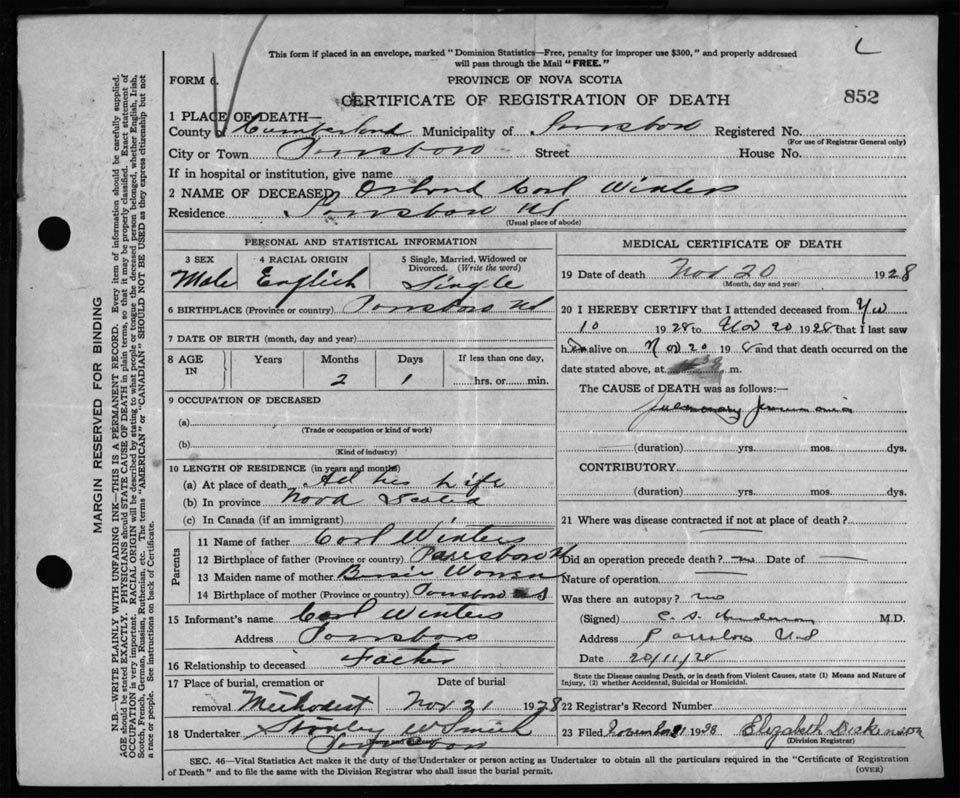 This form if placed in an envelope, marked "Dominion Statistics—Free, penalty for improper use $300," and properly addressed
will pass through the Mail "FREE."
FORM 6.
PROVINCE OF NOVA SCOTIA
CERTIFICATE OF REGISTRATION OF DEATH
852
1 PLACE OF DEATH—
County of Cumberland Municipality of Parrsboro Registered No.
(For use of Registrar General only)
City or Town Parrsboro Street House No.
If in hospital or institution, give name
2 NAME OF DECEASED Carl Winters
Residence Parrsboro NS
(Usual place of abode)
PERSONAL AND STATISTICAL INFORMATION
3 SEX 4 RACIAL ORIGIN 5 Single, Married, Widowed or Divorced. (Write the word)
Male English Single
6 BIRTHPLACE (Province or country) Parrsboro NS
7 DATE OF BIRTH (month, day and year)
8 AGE IN Years Months Days If less than one day,
2 1 hrs. or min.
9 OCCUPATION OF DECEASED
(a)
(Trade or occupation or kind of work)
(b)
(Kind of industry)
10 LENGTH OF RESIDENCE (in years and months)
(a) At place of death All his Life
(b) In province Nova Scotia
(c) In Canada (if an immigrant)
Parents
11 Name of father Carl Winters
12 Birthplace of father (Province or country) Parrsboro NS
13 Maiden name of mother
14 Birthplace of mother (Province or country) Parrsboro NS
15 Informant's name Carl Winters
Address Parrsboro
16 Relationship to deceased Father
17 Place of burial, cremation or removal Methodist Date of burial Nov 21 1928
18 Undertaker Stanley W Smith
Parrsboro
MEDICAL CERTIFICATE OF DEATH
19 Date of death Nov 20 1928
(Month, day and year)
20 I HEREBY CERTIFY that I attended deceased from Nov
10 1928 to Nov 20 1928 that I last saw
him alive on Nov 20 1928 and that death occurred on the
date stated above, at m.
The CAUSE of DEATH was as follows:—
pulmonary pneumonia
(duration) yrs. mos. dys.
CONTRIBUTORY
(duration) yrs. mos. dys.
21 Where was disease contracted if not at place of death?
Did an operation precede death? no Date of
Nature of operation
Was there an autopsy? no
(Signed) M.D.
Address Parrsboro N.S
Date 20/11/28
State the Disease causing Death, or in death from Violent Causes, state (1) Means and Nature of
Injury, (2) whether Accidental, Suicidal or Homicidal.
22 Registrar's Record Number
23 Filed November 21 1928 Elizabeth Dickinson
(Division Registrar)
SEC. 46—Vital Statistics Act makes it the duty of the Undertaker or person acting as Undertaker to obtain all the particulars required in the "Certificate of Registration
of Death" and to file the same with the Division Registrar who shall issue the burial permit.
(OVER)
MARGIN RESERVED FOR BINDING
N.B.—WRITE PLAINLY WITH UNFADING INK—THIS IS A PERMANENT RECORD. Every item of information should be carefully supplied.
AGE should be stated EXACTLY. PHYSICIANS should STATE CAUSE OF DEATH in plain terms, so that it may be properly classified. Exact statement of
OCCUPATION is very important. RACIAL ORIGIN will be described by stating to what people or tongue the deceased person belonged, whether English, Irish,
Scotch, French, German, Russian, Ruthenian, etc. The terms "AMERICAN" or "CANADIAN" SHOULD NOT BE USED as they express citizenship but not
a race or people. See instructions on back of Certificate.